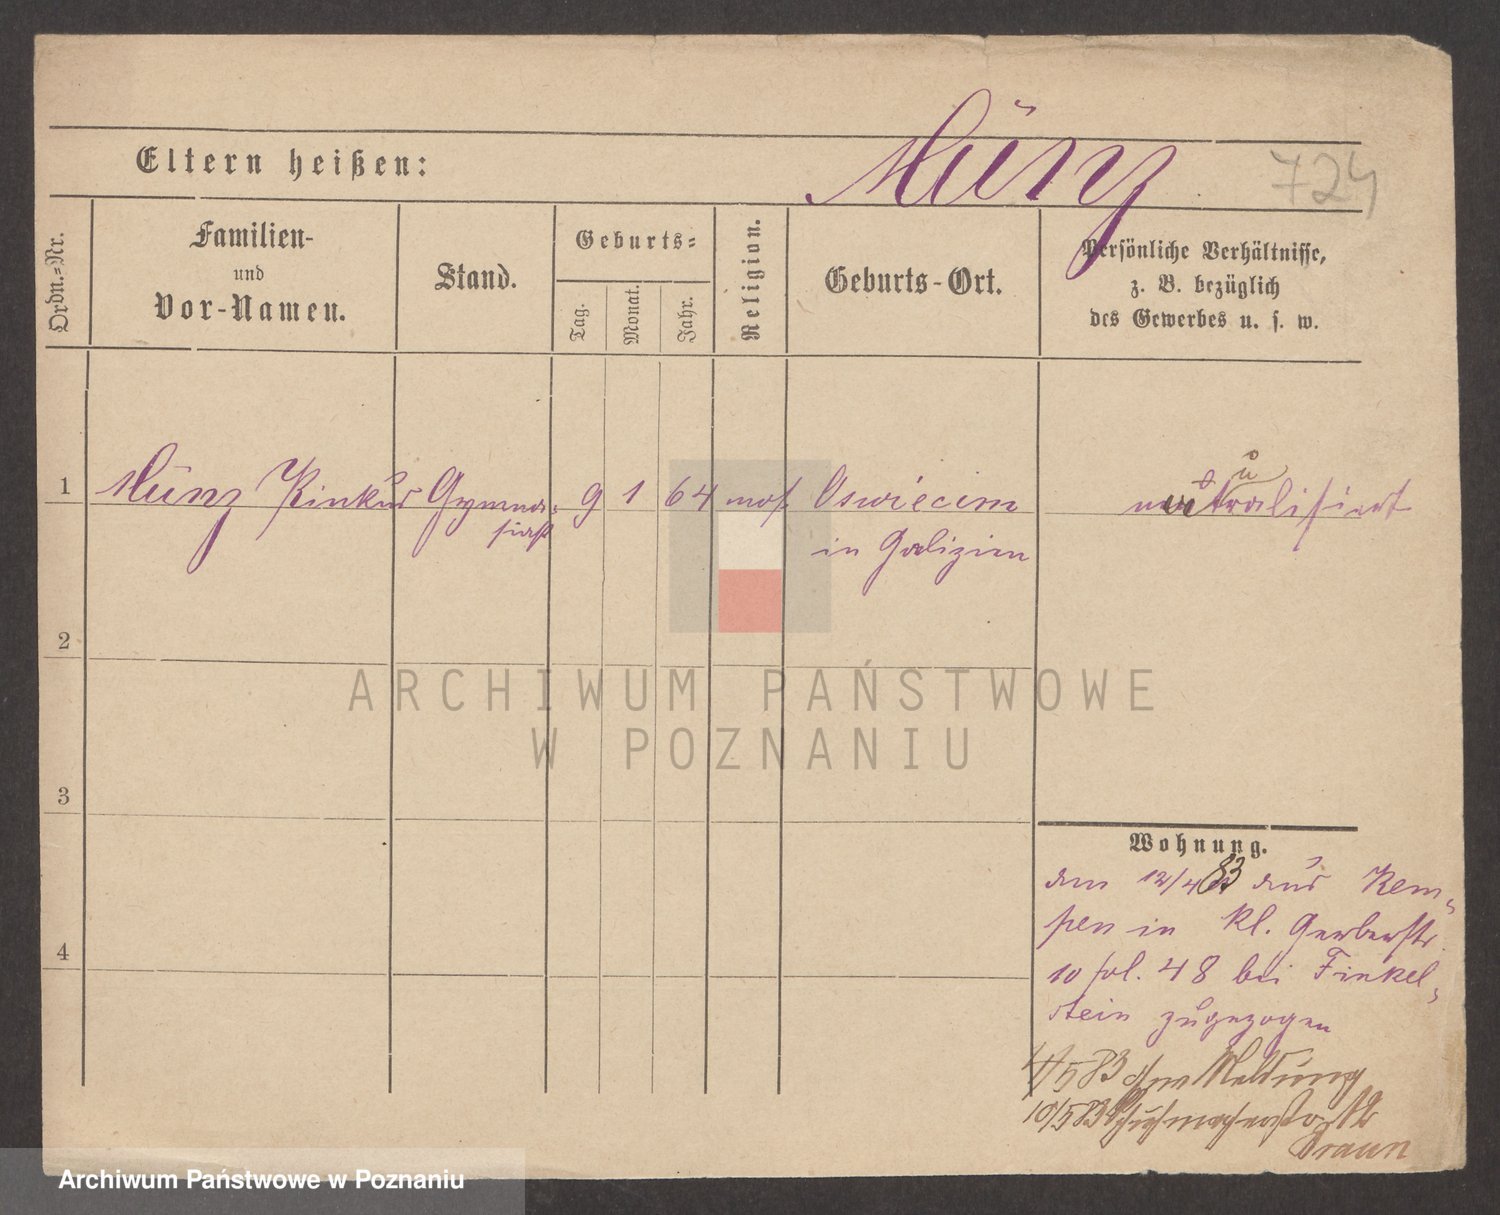 Münz
724
Eltern heißen:
Ordn.=Nr.
Familien-
und
Vor-Namen.
Stand.
Geburts=
Tag.
Monat.
Jahr.
Religion.
Geburts-Ort.
Persönliche Verhältnisse,
z. B. bezüglich
des Gewerbes u. s. w.
1
Münz Pinkus
Gymna-
siast
9
1
64
mos.
Oswiecim
in Galizien
2
3
4
Wohnung.
den 12/4 83 aus Kem-
pen in Kl. Gerberstr.
10 fol. 48 bei Finkel-
stein zugezogen
4/5 83 Meldung
10/5 83 Schuhmacherstr. 12
Braun
ARCHIWUM PAŃSTWOWE
W POZNANIU
Archiwum Państwowe w Poznaniu